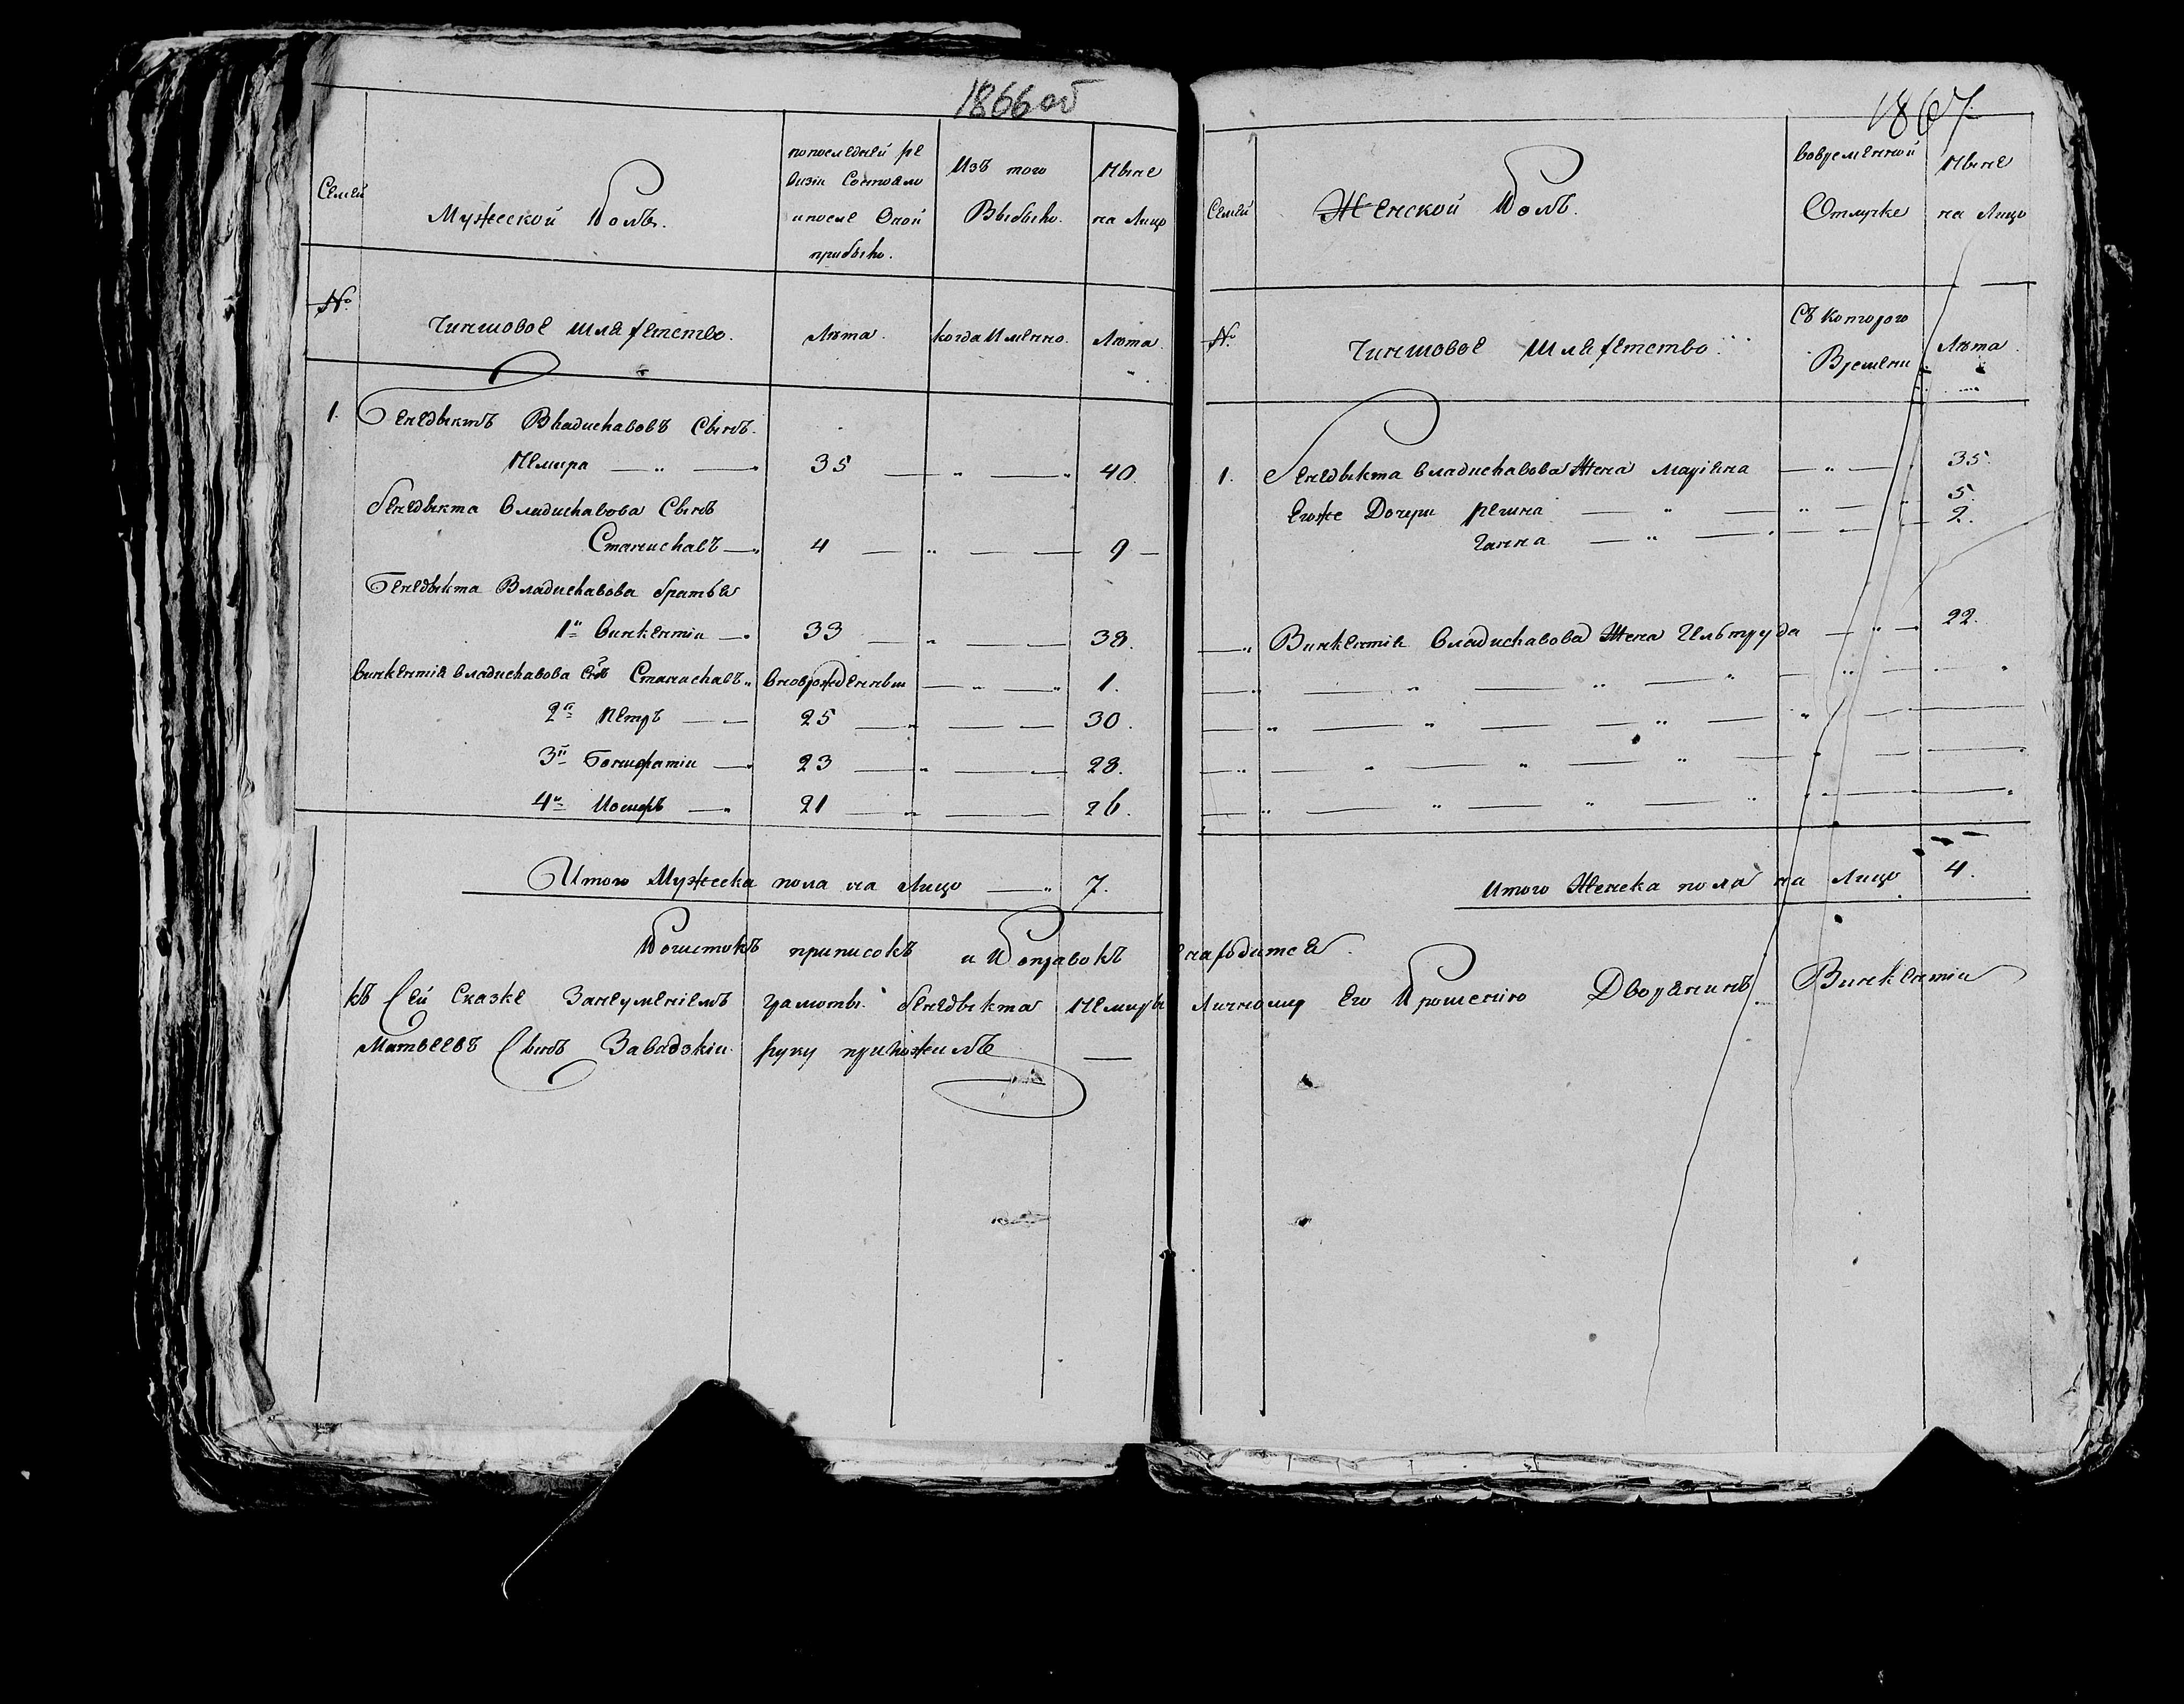 1866 об
Семей
Мужеской Полъ.
по последней ре
визіи Состояло
и после Оной
прибыло.
Изъ того
Выбыло.
Ныне
на Лицо
№
Чиншовое шляхетство.
Лѣта.
когда Именно.
Лѣта
1. Бенедыктъ Владиславовъ Сынъ.
Немира — " — 35 — " — 40.
Бенедыкта Владиславова Сынъ
Станиславъ — " 4 — " — — 9 —
Бенедыкта Владиславова братья
1й Винкентіи — 33 — " — — 38.
Винкентія Владиславова Снъ Станиславъ " вновьрожденныи — " — " 1.
2й Петръ — — 25 — " — — 30.
3й Бонифатіи — 23 — " — — 28.
4й Иосифъ — " 21 — " — 26.
Итого Мужеска пола на Лицо — " 7.
1867
Семей
Женской Полъ.
Вовременной
Отлучке
Ныне
на Лицо
№
Чиншовое шляхетство.
Съ которого
Времени
Лѣта
1. Бенедыкта Владиславова Жена Маріяна — " — 35.
Егоже Дочери Регина — " — " — " 5.
Ганна — " — — — 2.
— " Винкентія Владиславова Жена Гельтруда — " — 22.
Итого Женска пола на Лицо 4.
Почистокъ приписокъ и Поправокъ ненаходится.
Къ Сей Сказке Занеуменіемъ грамоты Бенедыкта Немиры Личному Его Прошенію Дворянинъ Винкентіи
Матвеевъ Сынъ Завадзкіи руку приложилъ —